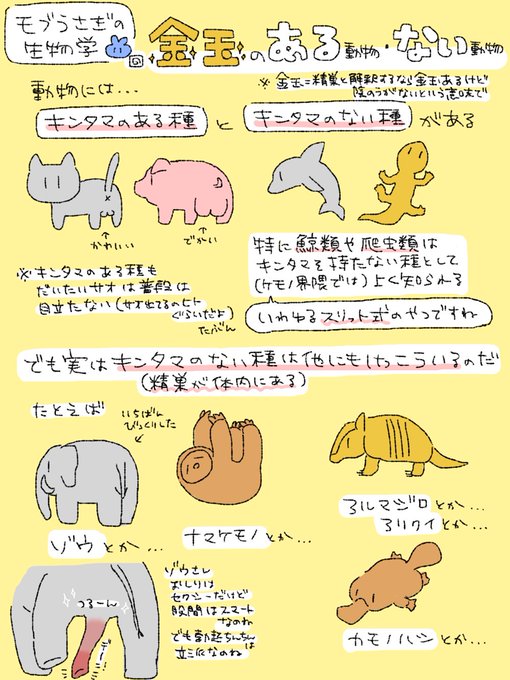 モブうさぎの
生物学 回
金玉のある動物・ない動物
※金玉=精巣と解釈するなら金玉あるけど
陰のうがないという意味で
動物には...
キンタマのある種 と キンタマのない種 がある
↑
かわいい
↑
でかい
※キンタマのある種も
だいたいサオは普段は
目立たない(サオ出てるのヒト
ぐらいだよ)
たぶん
特に鯨類や爬虫類は
キンタマを持たない種として
(ケモノ界隈では)よく知られる
いわゆるスリット式のやつですね
でも実はキンタマのない種は他にもけっこういるのだ
(精巣が体内にある)
たとえば
いちばん
びっくりした
ゾウとか...
ナマケモノとか...
アルマジロとか...
アリクイとか...
つるーん
ゾウさん
おしりは
セクシーだけど
股間はスマート
なのね
でも勃起ちんちんは
立派なのね
カモノハシとか...